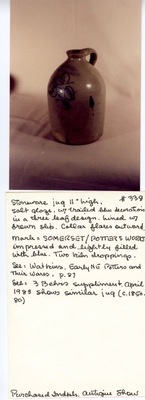 Stoneware jug 11" high. #338
Salt glaze w/ trailed blue decoration
in a three leaf design. Lined w/
brown slip. Collar flares outward.
Mark = SOMERSET/POTTERS WORKS
impressed and lightly filled
with blue. Two kiln droppings.
See: Watkins, Early N.E. Potters and
Their Wares, p. 87
See: 3 Behrs supplement, April
1985 shows similar jug (c. 1850-
80)
Purchased Antique Show